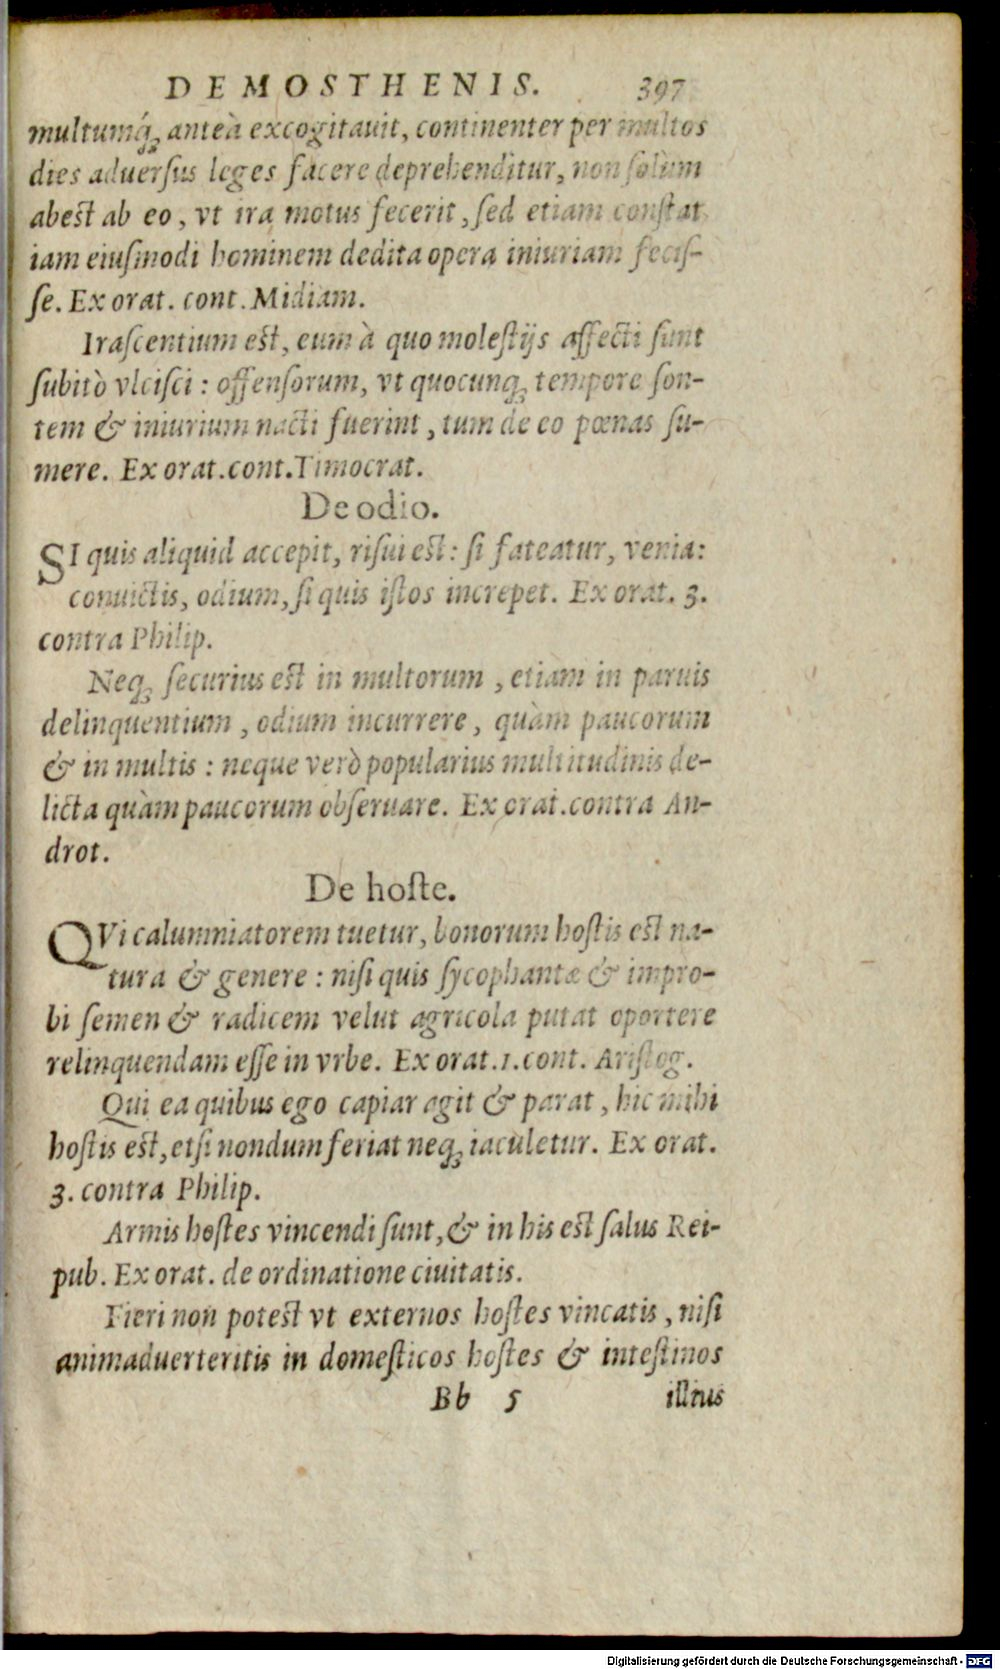 DEMOSTHENIS. 397
multumq́ꝫ anteà excogitauit, continenter per multos
dies aduerſus leges facere deprehenditur, non ſolùm
abest ab eo, vt ira motus fecerit, ſed etiam conſtat
iam eiuſmodi hominem dedita opera iniuriam feciſ-
ſe. Ex orat. cont. Midiam.
Iraſcentium est, eum à quo moleſtijs affecti ſunt
ſubitò vlciſci: offenſorum, vt quocunqꝫ tempore ſon-
tem & iniurium nacti fuerint, tum de eo pœnas ſu-
mere. Ex orat. cont. Timocrat.
De odio.
SI quis aliquid accepit, riſui est: ſi fateatur, venia:
conuictis, odium, ſi quis iſtos increpet. Ex orat. 3.
contra Philip.
Neqꝫ ſecurius est in multorum, etiam in paruis
delinquentium, odium incurrere, quàm paucorum
& in multis: neque verò popularius multitudinis de-
licta quàm paucorum obſeruare. Ex orat. contra An-
drot.
De hoſte.
QVi calumniatorem tuetur, bonorum hoſtis est na-
tura & genere: niſi quis ſycophantæ & impro-
bi ſemen & radicem velut agricola putat oportere
relinquendam eſſe in vrbe. Ex orat. 1. cont. Ariſtog.
Qui ea quibus ego capiar agit & parat, hic mihi
hoſtis est, etſi nondum feriat neqꝫ iaculetur. Ex orat.
3. contra Philip.
Armis hoſtes vincendi ſunt, & in his est ſalus Rei-
pub. Ex orat. de ordinatione ciuitatis.
Fieri non potest vt externos hoſtes vincatis, niſi
animaduerteritis in domeſticos hoſtes & inteſtinos
Bb 5 illius
Digitalisierung gefördert durch die Deutsche Forschungsgemeinschaft - DFG